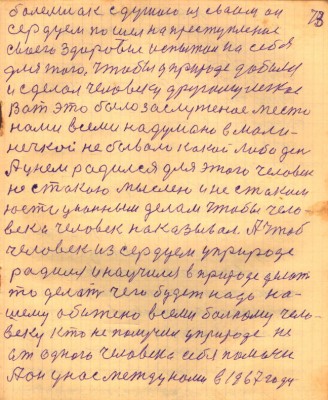 73
болели ак с душою из сваим он
сердцем пошел на преступление
своего здоровье испытал на себя
для того, чтобы у природе добился
и сделал человеку другому легкое
Вот это было заслуженое место
нами всеми надумано в мали-
нечкой небывало какой либо ден
А у нем радился для этого человек
не с такою мыслею и не с таким
к чтобы чело-
века человек наказывал А чтоб
человек из сердцем у природе
радился и научился в природе делать
то делать чего будет надо на-
шему обижено всеми больному чело-
веку кто не получил у природе не
ат одного человека себе помочи
А он у нас между нами в 1967 году